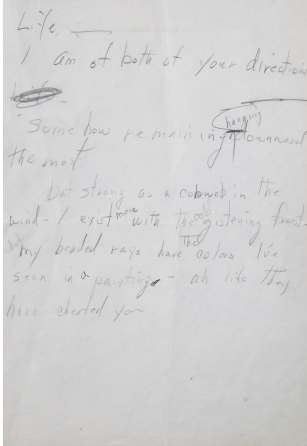 Life, —
I am of both of your directions
Life
hanging
Somehow remaining downward
the most
but strong as a cobweb in the
wind - I exist more with the cold glistening frost.
my beaded rays have the colors I've
seen in a painting - ah life they
have cheated you